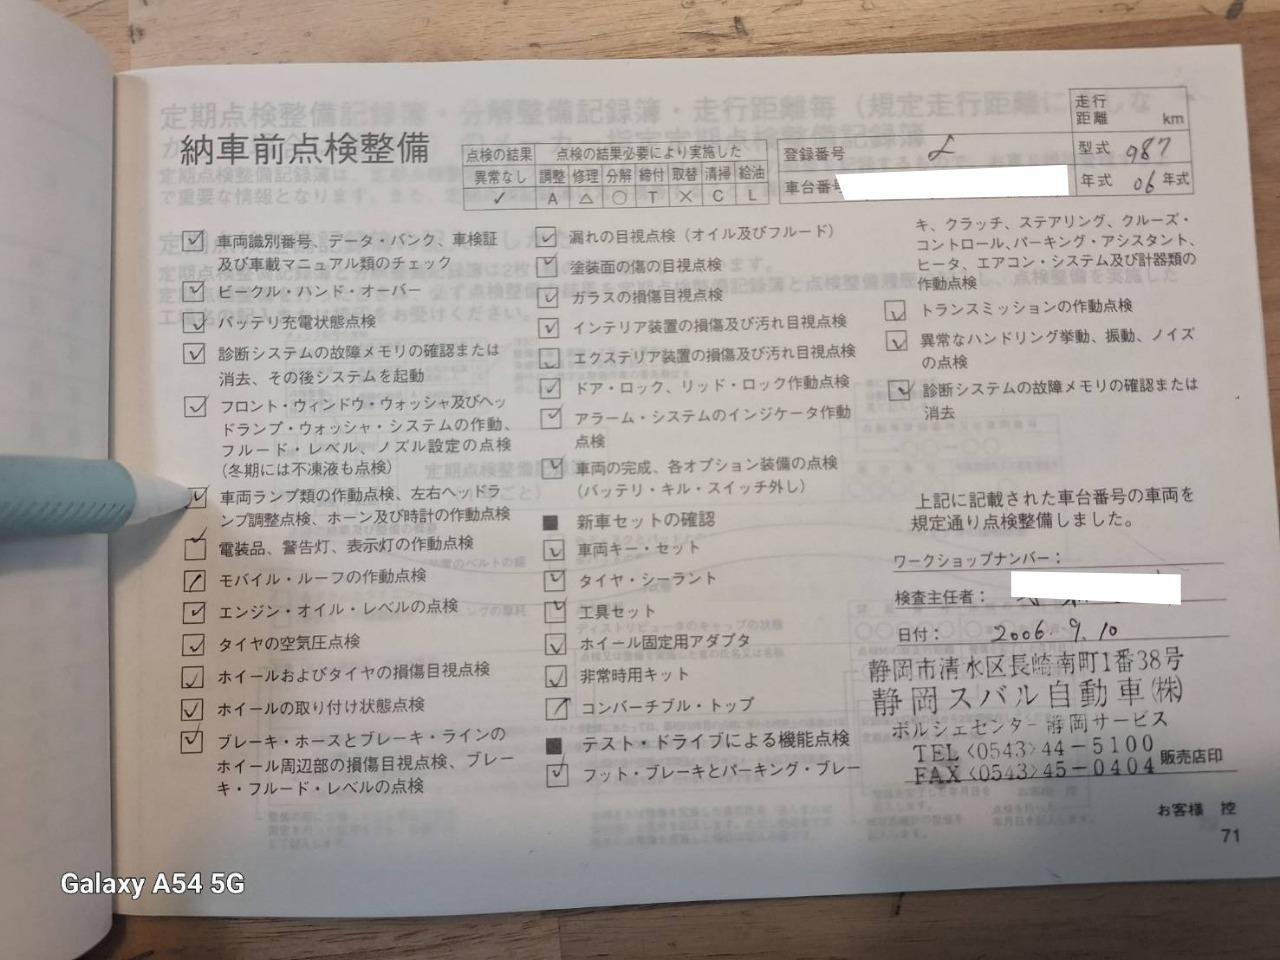 納車前点検整備
点検の結果 点検の結果必要により実施した
異常なし 調整 修理 分解 締付 取替 清掃 給油
✓ A △ ○ T × C L
登録番号
車台番号
走行距離 km
型式 987
年式 06 年式
車両識別番号、データ・バンク、車検証
及び車載マニュアル類のチェック
ビークル・ハンド・オーバー
バッテリ充電状態点検
診断システムの故障メモリの確認または
消去、その後システムを起動
フロント・ウィンドウ・ウォッシャ及びヘッ
ドランプ・ウォッシャ・システムの作動、
フルード・レベル、ノズル設定の点検
(冬期には不凍液も点検)
車両ランプ類の作動点検、左右ヘッドラ
ンプ調整点検、ホーン及び時計の作動点検
電装品、警告灯、表示灯の作動点検
モバイル・ルーフの作動点検
エンジン・オイル・レベルの点検
タイヤの空気圧点検
ホイールおよびタイヤの損傷目視点検
ホイールの取り付け状態点検
ブレーキ・ホースとブレーキ・ラインの
ホイール周辺部の損傷目視点検、ブレー
キ・フルード・レベルの点検
漏れの目視点検(オイル及びフルード)
塗装面の傷の目視点検
ガラスの損傷目視点検
インテリア装置の損傷及び汚れ目視点検
エクステリア装置の損傷及び汚れ目視点検
ドア・ロック、リッド・ロック作動点検
アラーム・システムのインジケータ作動
点検
車両の完成、各オプション装備の点検
(バッテリ・キル・スイッチ外し)
■ 新車セットの確認
車両キー・セット
タイヤ・シーラント
工具セット
ホイール固定用アダプタ
非常時用キット
コンバーチブル・トップ
■ テスト・ドライブによる機能点検
フット・ブレーキとパーキング・ブレー
キ、クラッチ、ステアリング、クルーズ・
コントロール、パーキング・アシスタント、
ヒータ、エアコン・システム及び計器類の
作動点検
トランスミッションの作動点検
異常なハンドリング挙動、振動、ノイズ
の点検
診断システムの故障メモリの確認または
消去
上記に記載された車台番号の車両を
規定通り点検整備しました。
ワークショップナンバー:
検査主任者:
日付: 2006. 9. 10
静岡市清水区長崎南町1番38号
静岡スバル自動車(株)
ポルシェセンター静岡サービス
TEL<0543>44-5100
FAX<0543>45-0404
販売店印
お客様 控
71
Galaxy A54 5G